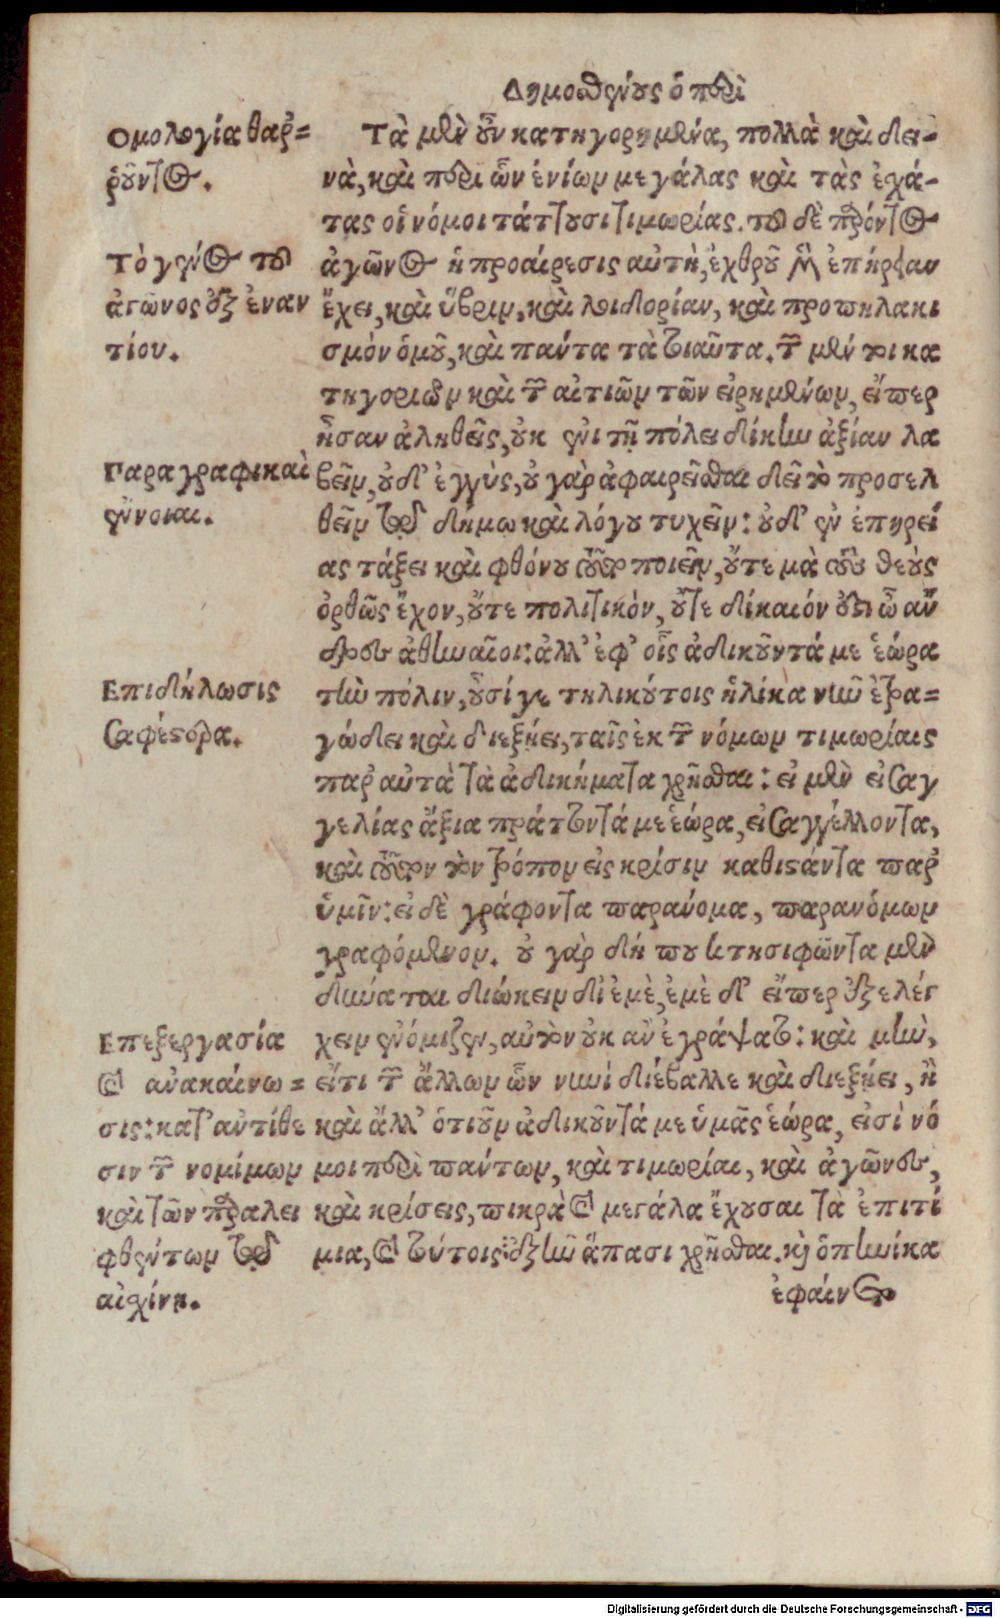 Δημοσθένους ὁ περὶ
Ομολογία θαῤ=
ῥοῦντος.
Τὸ γένος τοῦ
ἀγῶνος ἐξ ἐναν
τίου.
Παραγραφικαὶ
ἔννοιαι.
Επιδήλωσις
σαφεστέρα.
Επεξεργασία
καὶ ἀνακαίνω=
σις: κατ' ἀντίθε
σιν τῶν νομίμων
καὶ τῶν παραλει
φθέντων τῷ
αἰσχίνῃ.
Τὰ μὲν οὖν κατηγορημένα, πολλὰ καὶ δει-
νὰ, καὶ περὶ ὧν ἐνίων μεγάλας καὶ τὰς ἐχά-
τας οἱ νόμοι τάττουσι τιμωρίας. τοῦ δὲ παρόντος
ἀγῶνος ἡ προαίρεσις αὐτὴ, ἐχθροῦ μὲν ἐπήρειαν
ἔχει, καὶ ὕβριν, καὶ λοιδορίαν, καὶ προπηλακι
σμὸν ὁμοῦ, καὶ πάντα τὰ τοιαῦτα. τῶν μέντοι κα
τηγοριῶν καὶ τῶν αἰτιῶν τῶν εἰρημένων, εἴπερ
ἦσαν ἀληθεῖς, οὐκ ἔνι τῇ πόλει δίκην ἀξίαν λα
βεῖν, οὐδ' ἐγγὺς, οὐ γὰρ ἀφαιρεῖσθαι δεῖ τὸ προσελ
θεῖν τῷ δήμῳ καὶ λόγου τυχεῖν: οὐδ' ἐν ἐπηρεί
ας τάξει καὶ φθόνου τοῦτο ποιεῖν, οὔτε μὰ τοὺς θεοὺς
ὀρθῶς ἔχον, οὔτε πολιτικὸν, οὔτε δίκαιόν ἐστι ὦ ἄν
δρες ἀθηναῖοι: ἀλλ' ἐφ' οἷς ἀδικοῦντά με ἑώρα
τὴν πόλιν, οὖσί γε τηλικούτοις ἡλίκα νῦν ἐτρα=
γώδει καὶ διεξῄει, ταῖς ἐκ τῶν νόμων τιμωρίαις
παρ' αὐτὰ τὰ ἀδικήματα χρῆσθαι: εἰ μὲν εἰσαγ
γελίας ἄξια πράττοντά με ἑώρα, εἰσαγγέλλοντα,
καὶ τοῦτον τὸν τρόπον εἰς κρίσιν καθιστάντα παρ'
ὑμῖν: εἰ δὲ γράφοντα παράνομα, παρανόμων
γραφόμενον. οὐ γὰρ δή που κτησιφῶντα μὲν
δύναται διώκειν δι' ἐμὲ, ἐμὲ δ' εἴπερ ἐξελέγ
ξειν ἐνόμιζεν, αὐτὸν οὐκ ἂν ἐγράψατο: καὶ μὴν,
εἴ τι τῶν ἄλλων ὧν νυνὶ διέβαλλε καὶ διεξῄει, ἢ
καὶ ἄλλ' ὁτιοῦν ἀδικοῦντά με ὑμᾶς ἑώρα, εἰσὶ νό
μοι περὶ πάντων, καὶ τιμωρίαι, καὶ ἀγῶνες,
καὶ κρίσεις, πικρὰ καὶ μεγάλα ἔχουσαι τὰ ἐπιτί
μια, καὶ τούτοις ἐξῆν ἅπασι χρῆσθαι. καὶ ὁπηνίκα
ἐφαίνετο
Digitalisierung gefördert durch die Deutsche Forschungsgemeinschaft - DFG